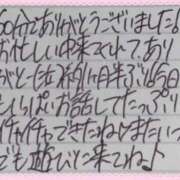 60分ありがとうございました!
お忙しい中来てくれてあり
がと一位 2ヶ月半ぶり今日
もいっぱいお話してたっぷり
イチャイチャできたねまたいつ
でも遊びに来てね♪